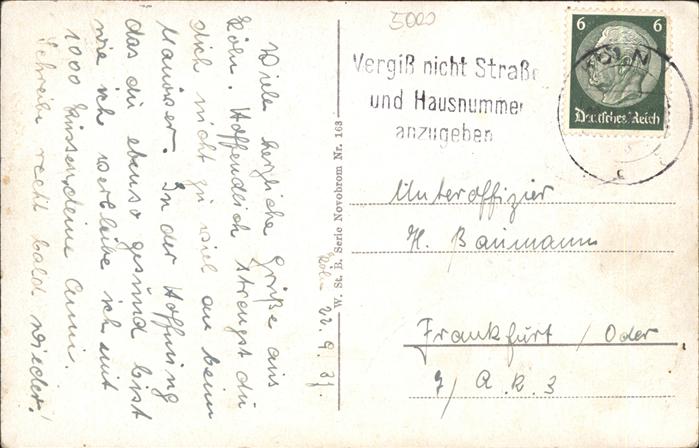 5000
Vergiß nicht Straße
und Hausnummer
anzugeben
6 6
Deutsches Reich
KÖLN
c
Köln 22.9.37.
Viele herzliche Grüße aus
Köln. Hoffendlich strengst du
dich nicht zu viel an beim
Manöver. In der Hoffnung
das du ebenso gesund bist
wie ich verbleibe ich mit
1000 Küssen deine Anni.
Schreibe recht bald wieder!
W. St. B. Serie Novobrom Nr. 163
Unteroffizier
H. Baumann
Frankfurt / Oder
7/ A. R. 3